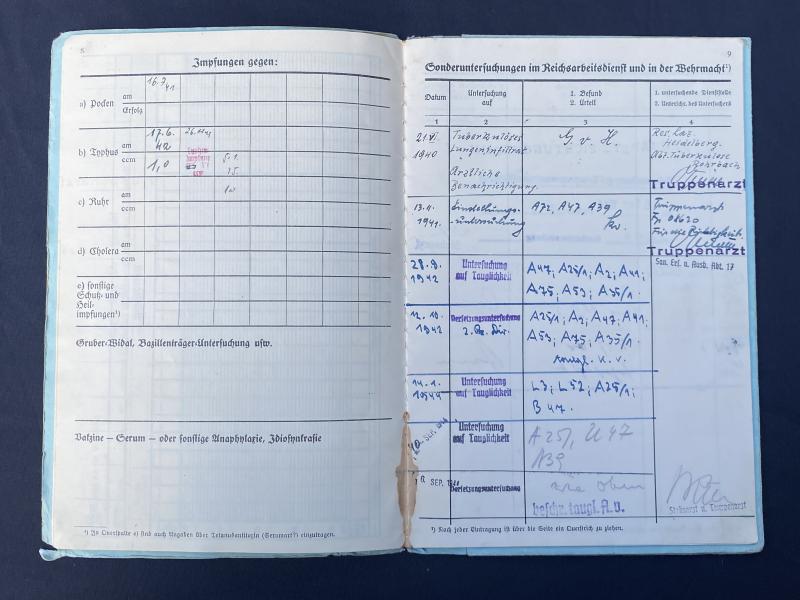 8
Impfungen gegen:
16.7.
41
a) Pocken
am
Erfolg
17.6. 26.
42
b) Typhus
am
ccm
1,0
5.1.
c) Ruhr
am
ccm
d) Cholera
am
ccm
e) sonstige
Schutz- und
Heil-
impfungen¹)
Gruber-Widal, Bazillenträger-Untersuchung usw.
Vakzine – Serum – oder sonstige Anaphylaxie, Idiosynkrasie
¹) In Querspalte e) sind auch Angaben über Tetanusantitoxin (Serumart?) einzutragen.
9
Sonderuntersuchungen im Reichsarbeitsdienst und in der Wehrmacht¹)
Datum
Untersuchung
auf
1. Befund
2. Urteil
1. untersuchende Dienststelle
2. Unterschr. des Untersuchers
1 2 3 4
21.VI.
1940
Tuberkulöses
Lungeninfiltrat
Ärztliche
Benachrichtigung.
G. v. H.
Res. Laz.
Heidelberg.
Abt. Tuberkulose
Rohrbach
Truppenarzt
13.11.
1941.
Einstellungs-
untersuchung
A72, A47, A39
kv.
Truppenarzt
Truppenarzt
San. Ers. u. Ausb. Abt. 17
28.9.
1942
Untersuchung
auf Tauglichkeit
A47; A25/1; A2; A41;
A75; A53; A35/1.
12.10.
1942
Versetzungsuntersuchung
2. Div.
A25/1; A2; A47; A41.
A53; A75; A35/1.
k. v.
14.1.
1944
Untersuchung
auf Tauglichkeit
L3; L52; A25/1;
B 47.
SEP. 1944
Untersuchung
auf Tauglichkeit
A 25/1, U 47
A39
SEP.
Versetzungsuntersuchung
wie oben
beschr. taugl. A.v.
Stabsarzt u. Truppenarzt
¹) Nach jeder Eintragung ist über die Seite ein Querstrich zu ziehen.